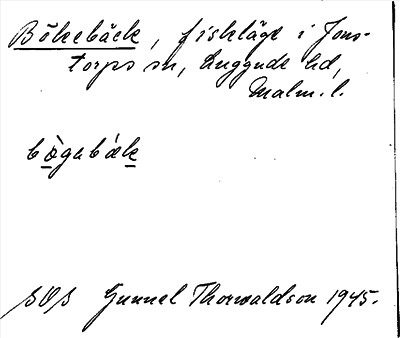 Bökebäck, fiskläge i Jons-
torps sn, Luggude hd,
Malm. l.
bögabäk
SOS Gunnel Thorwaldson 1945.